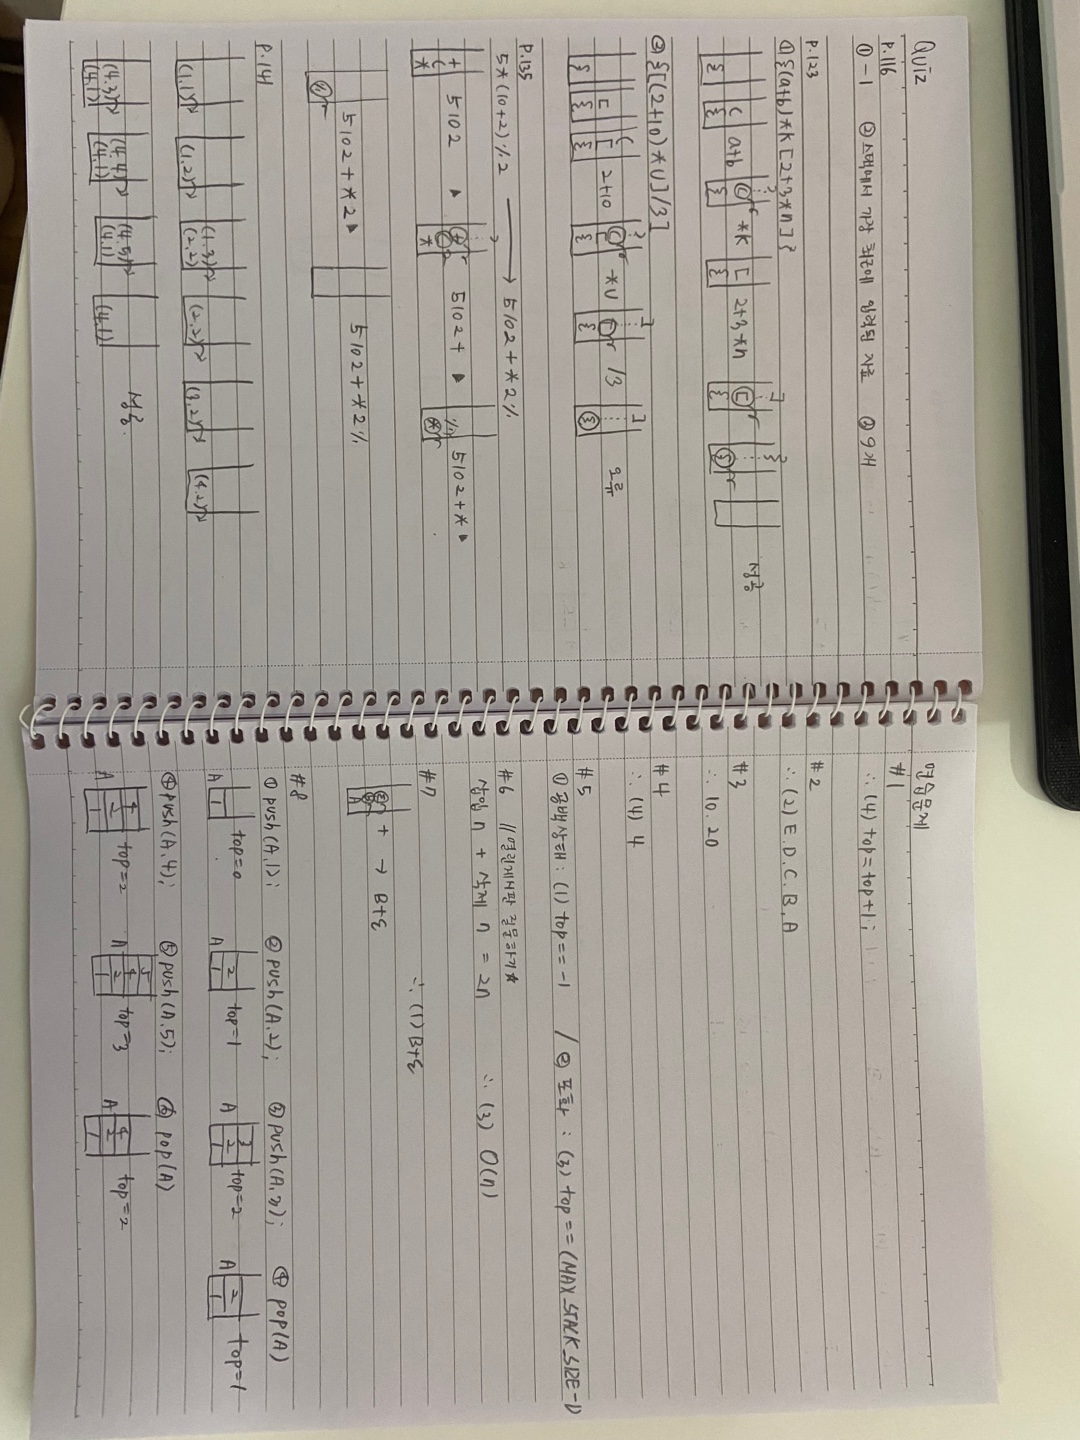 Quiz
P.116
① -1 ② 스택에서 가장 최근에 입력된 자료 ③ 9개
P.123
① {(a+b)*k[2+3*n]}
{ ( { a+b ( ) { *k [ { 2+3*n [ ] { { } 성공
② {[(2+10)*U]/3]
{ [ { ( [ { 2+10 ( ) [ { *U [ ] { /3 { ] 오류
P.135
5*(10+2)%2 → 5102+*2%
+ ( * 5102 ) + ( * 5102+ % * 5102+*
% 5102+*2 5102+*2%
P.141
(1.1) (1.2) (1.3) (2.2) (2.2) (3.2) (4.2)
(4.3) (4.1) (4.4) (4.1) (4.5) (4.1) (4.1) 성공.
연습문제
#1
∴ (4) top=top+1;
#2
∴ (2) E.D.C.B.A
#3
∴ 10. 20
#4
∴ (4) 4
#5
① 공백상태 : (1) top == -1 / ② 포화 : (3) top == (MAX_STACK_SIZE-1)
#6 //명령개념 질문하기★
삽입 n + 삭제 n = 2n ∴ (3) O(n)
#7 ∴ (1) B+E
+ → B+E
#8
① push(A.1); ② push(A.2); ③ push(A.3); ④ pop(A)
A 1 top=0 A 2 1 top=1 A 3 2 1 top=2 A 2 1 top=1
④ push(A.4); ⑤ push(A.5); ⑥ pop(A)
A 4 2 1 top=2 A 5 4 2 1 top=3 A 4 2 1 top=2